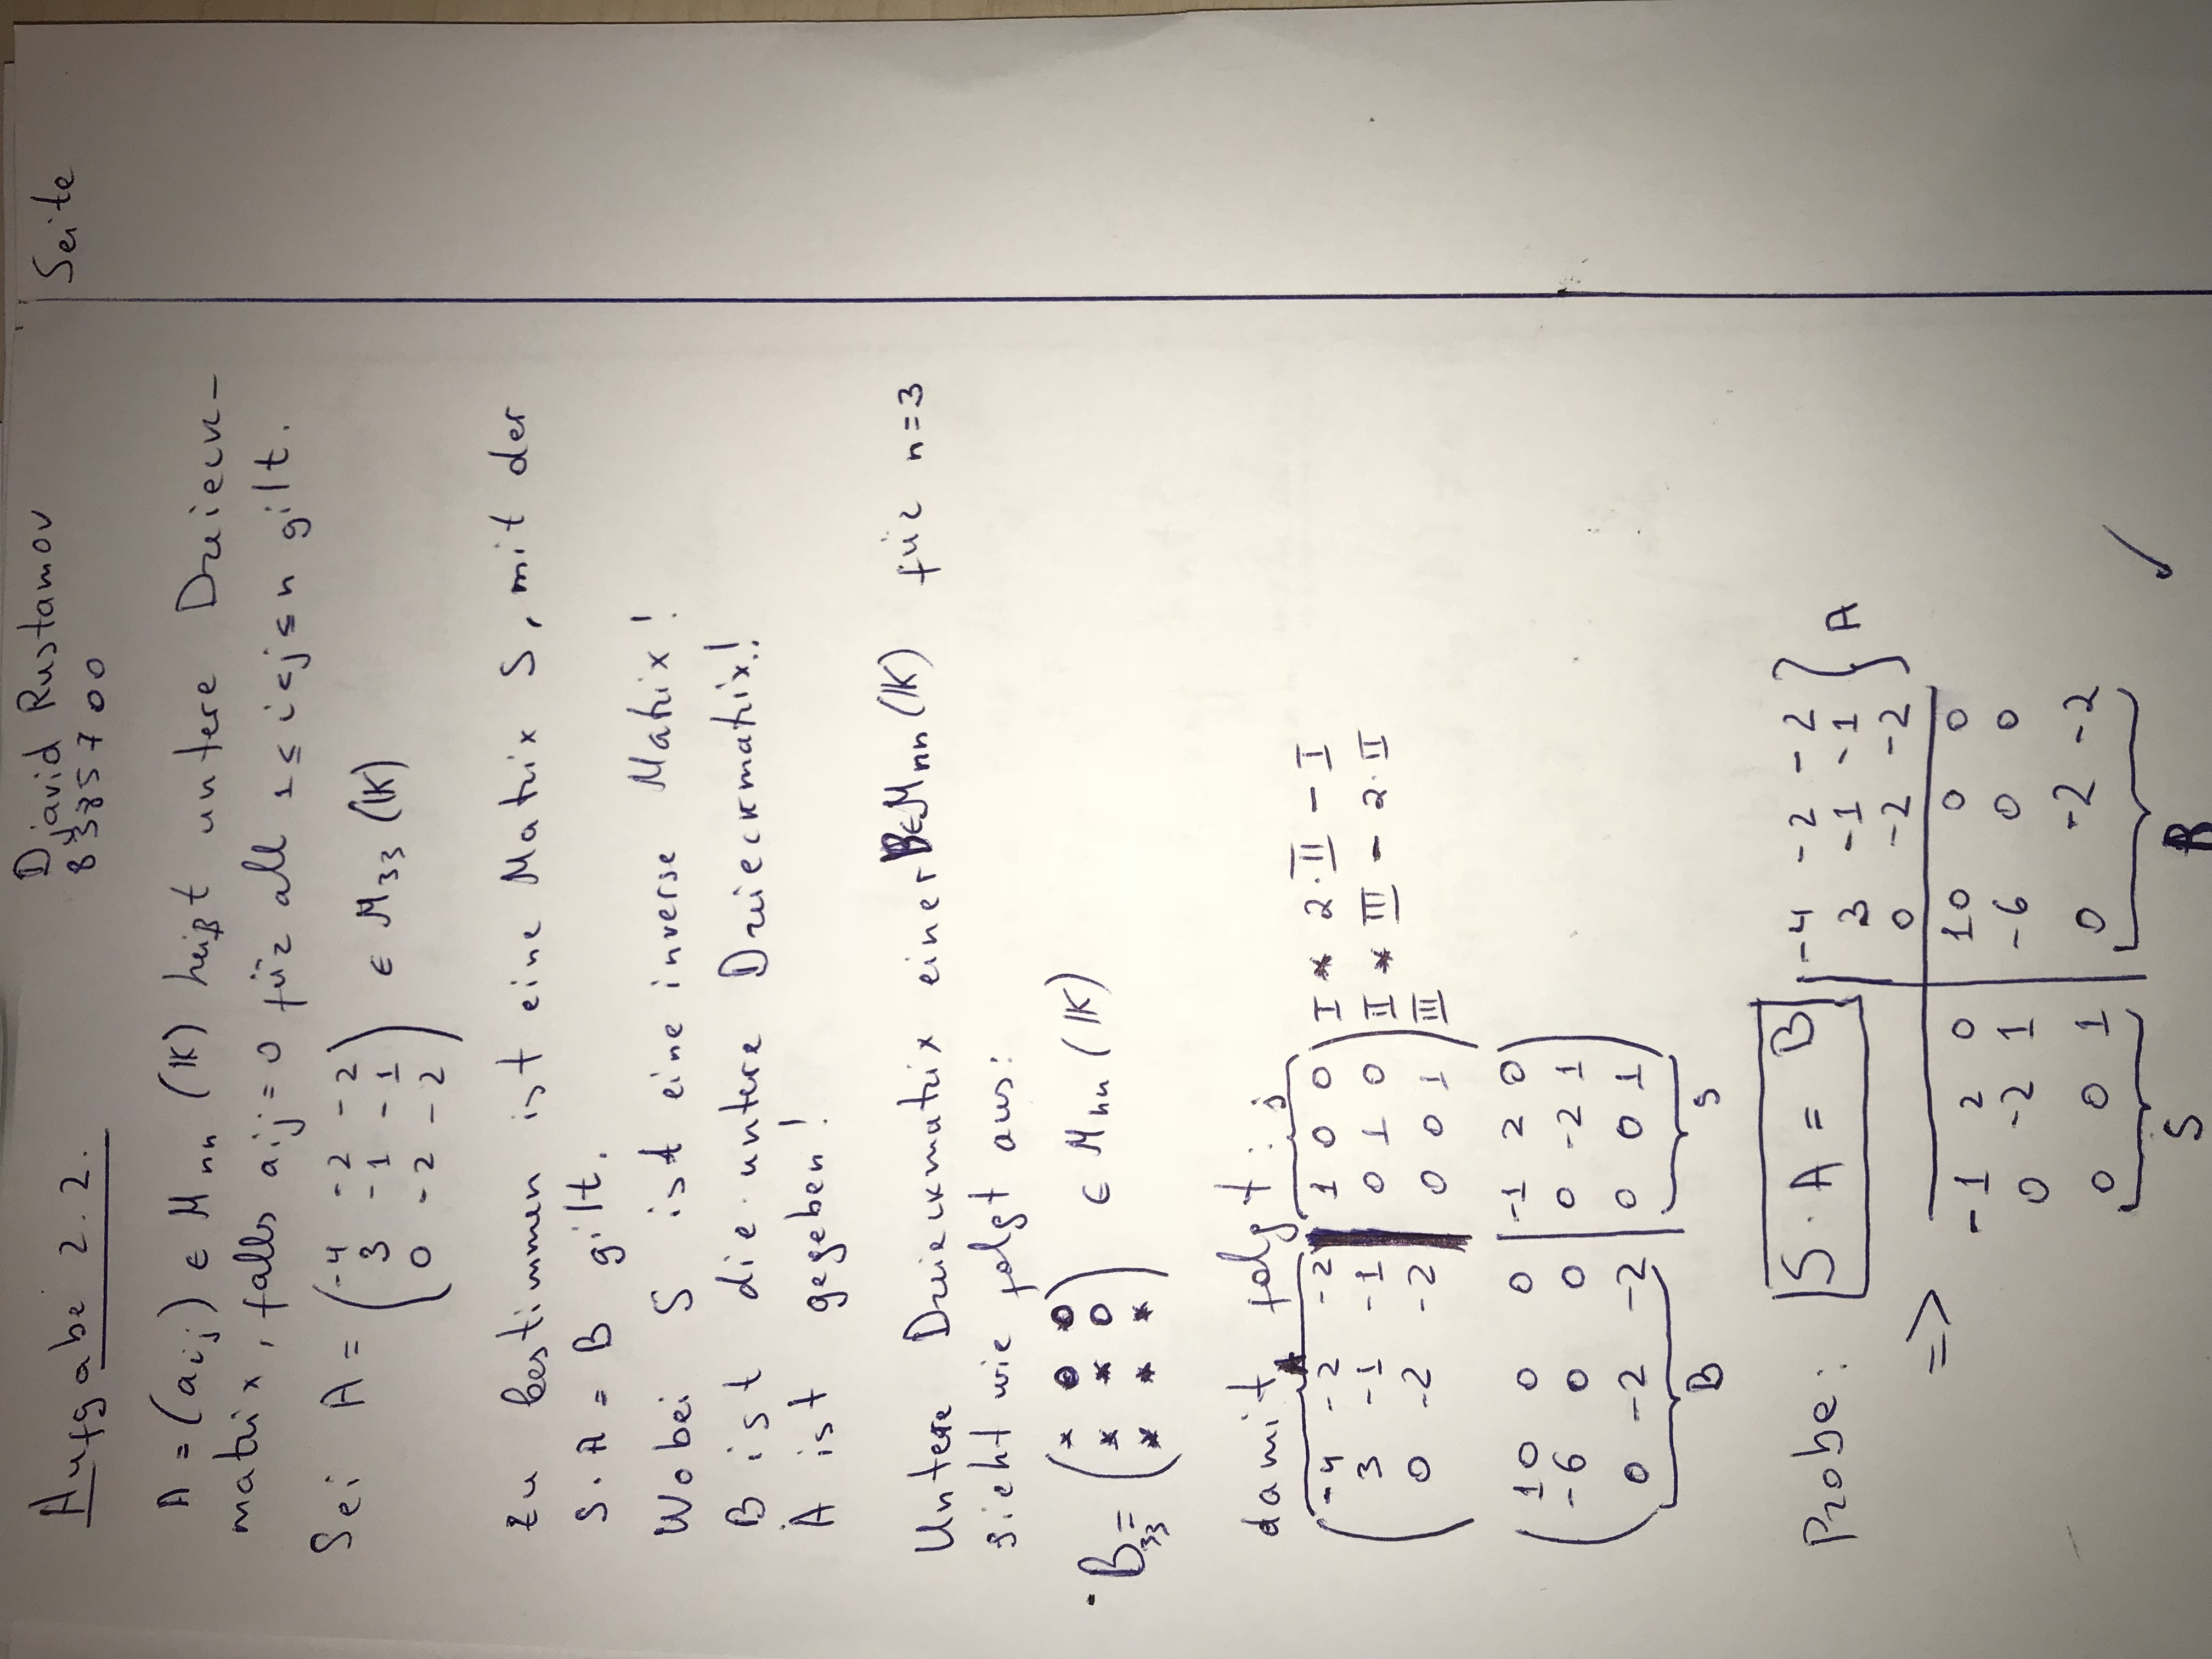 Aufgabe 2.2.
Djavid Rustamov
8385700
Seite
A = (aij) ∈ Mnn (K) heißt untere Dreieck-
matrix, falls aij = 0 für all 1 ≤ i < j ≤ n gilt.
Sei A = ( -4 -2 -2
3 -1 -1
0 -2 -2 ) ∈ M33 (K)
Zu bestimmen ist eine Matrix S, mit der
S · A = B gilt.
Wobei S ist eine inverse Matrix!
B ist die untere Dreieckmatrix!
A ist gegeben!
Untere Dreieckmatrix einer B ∈ Mnn (K) für n=3
sieht wie folgt aus:
B33 = ( * 0 0
* * 0
* * * ) ∈ Mnn (K)
damit folgt:
A s
( -4 -2 -2 | 1 0 0 ) I * 2·II - I
3 -1 -1 | 0 1 0 II * III - 2·II
0 -2 -2 | 0 0 1 III
( 10 0 0 | -1 2 0 )
-6 0 0 | 0 -2 1
0 -2 -2 | 0 0 1
B s
Probe: S · A = B
-4 -2 -2
3 -1 -1 } A
0 -2 -2
=>
-1 2 0 | 10 0 0
0 -2 1 | -6 0 0
0 0 1 | 0 -2 -2
S B ✓